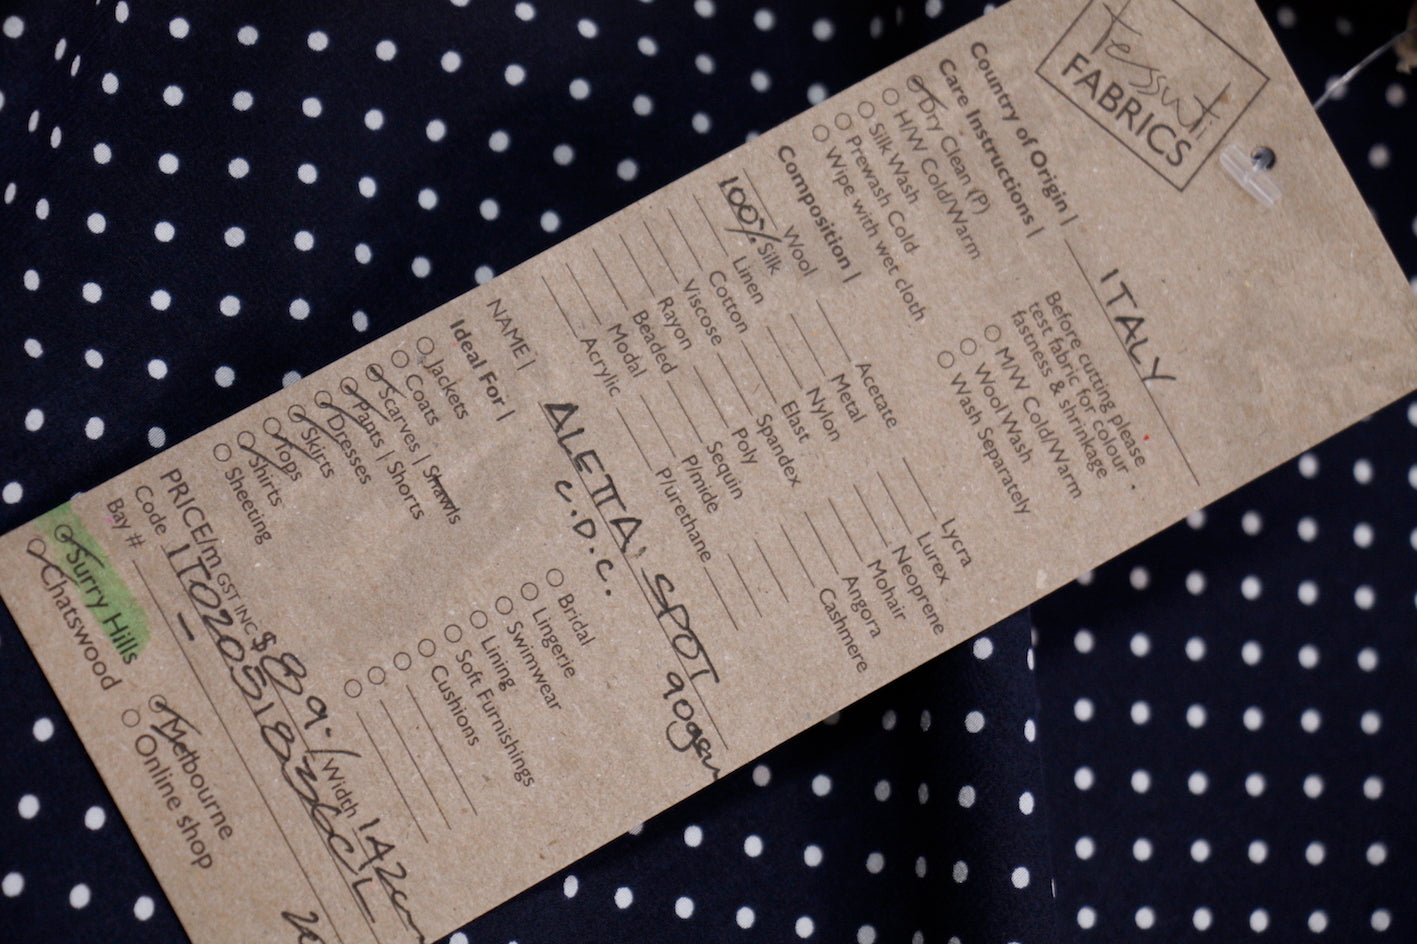 Tessuti
FABRICS
Country of Origin | ITALY
Care Instructions |
Dry Clean (P)
H/W Cold/Warm
Silk Wash
Prewash Cold
Wipe with wet cloth
Before cutting please
test fabric for colour
fastness & shrinkage.
M/W Cold/Warm
Wool Wash
Wash Separately
Composition |
Wool Acetate Lycra
100% Silk Metal Lurex
Linen Nylon Neoprene
Cotton Elast Mohair
Viscose Spandex Angora
Rayon Poly Cashmere
Beaded Sequin
Modal P/mide
Acrylic P/urethane
NAME | ALETTA SPOT
C.D.C. 90gsm
Ideal For |
Jackets
Coats
Scarves | Shawls
Pants | Shorts
Dresses
Skirts
Tops
Shirts
Sheeting
Bridal
Lingerie
Swimwear
Lining
Soft Furnishings
Cushions
PRICE/m GST INC $ 89.- Width 142cm
Code
Bay # -
Surry Hills Melbourne
Chatswood Online shop